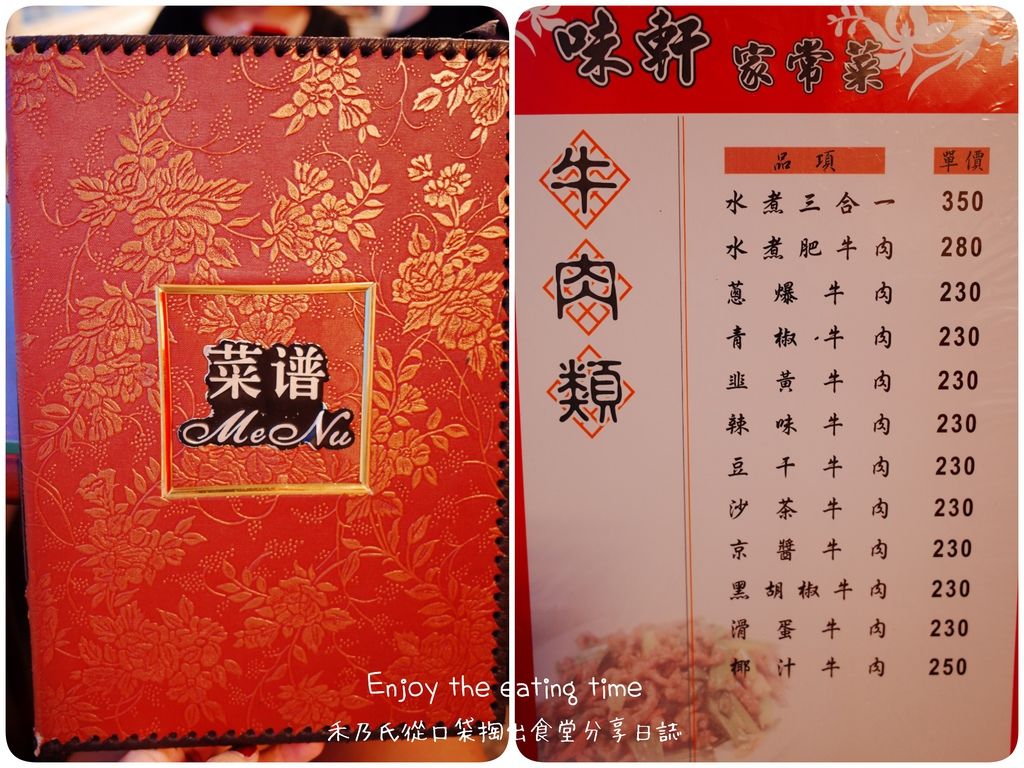 菜谱
MeNu
味軒 家常菜
牛肉類
品項 單價
水煮三合一 350
水煮肥牛肉 280
蔥爆牛肉 230
青椒牛肉 230
韭黃牛肉 230
辣味牛肉 230
豆干牛肉 230
沙茶牛肉 230
京醬牛肉 230
黑胡椒牛肉 230
滑蛋牛肉 230
椰汁牛肉 250
Enjoy the eating time
禾乃氏從口袋掏出食堂分享日誌